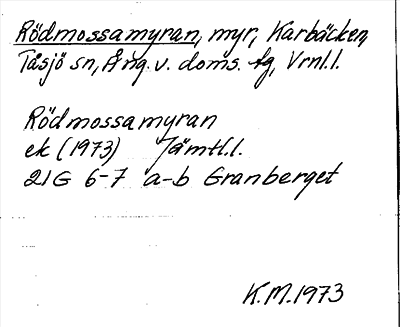 Rödmossamyran, myr, Karbäcken,
Tåsjö sn, Ång. v. doms. tg, Vrnl.l.
Rödmossamyran
ek (1973) Jämtl.l.
21G 6-7 a-b Granberget
K.M.1973